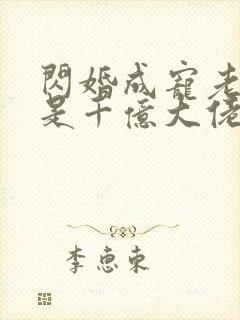 閃婚成寵老
是千億大佬
李惠東